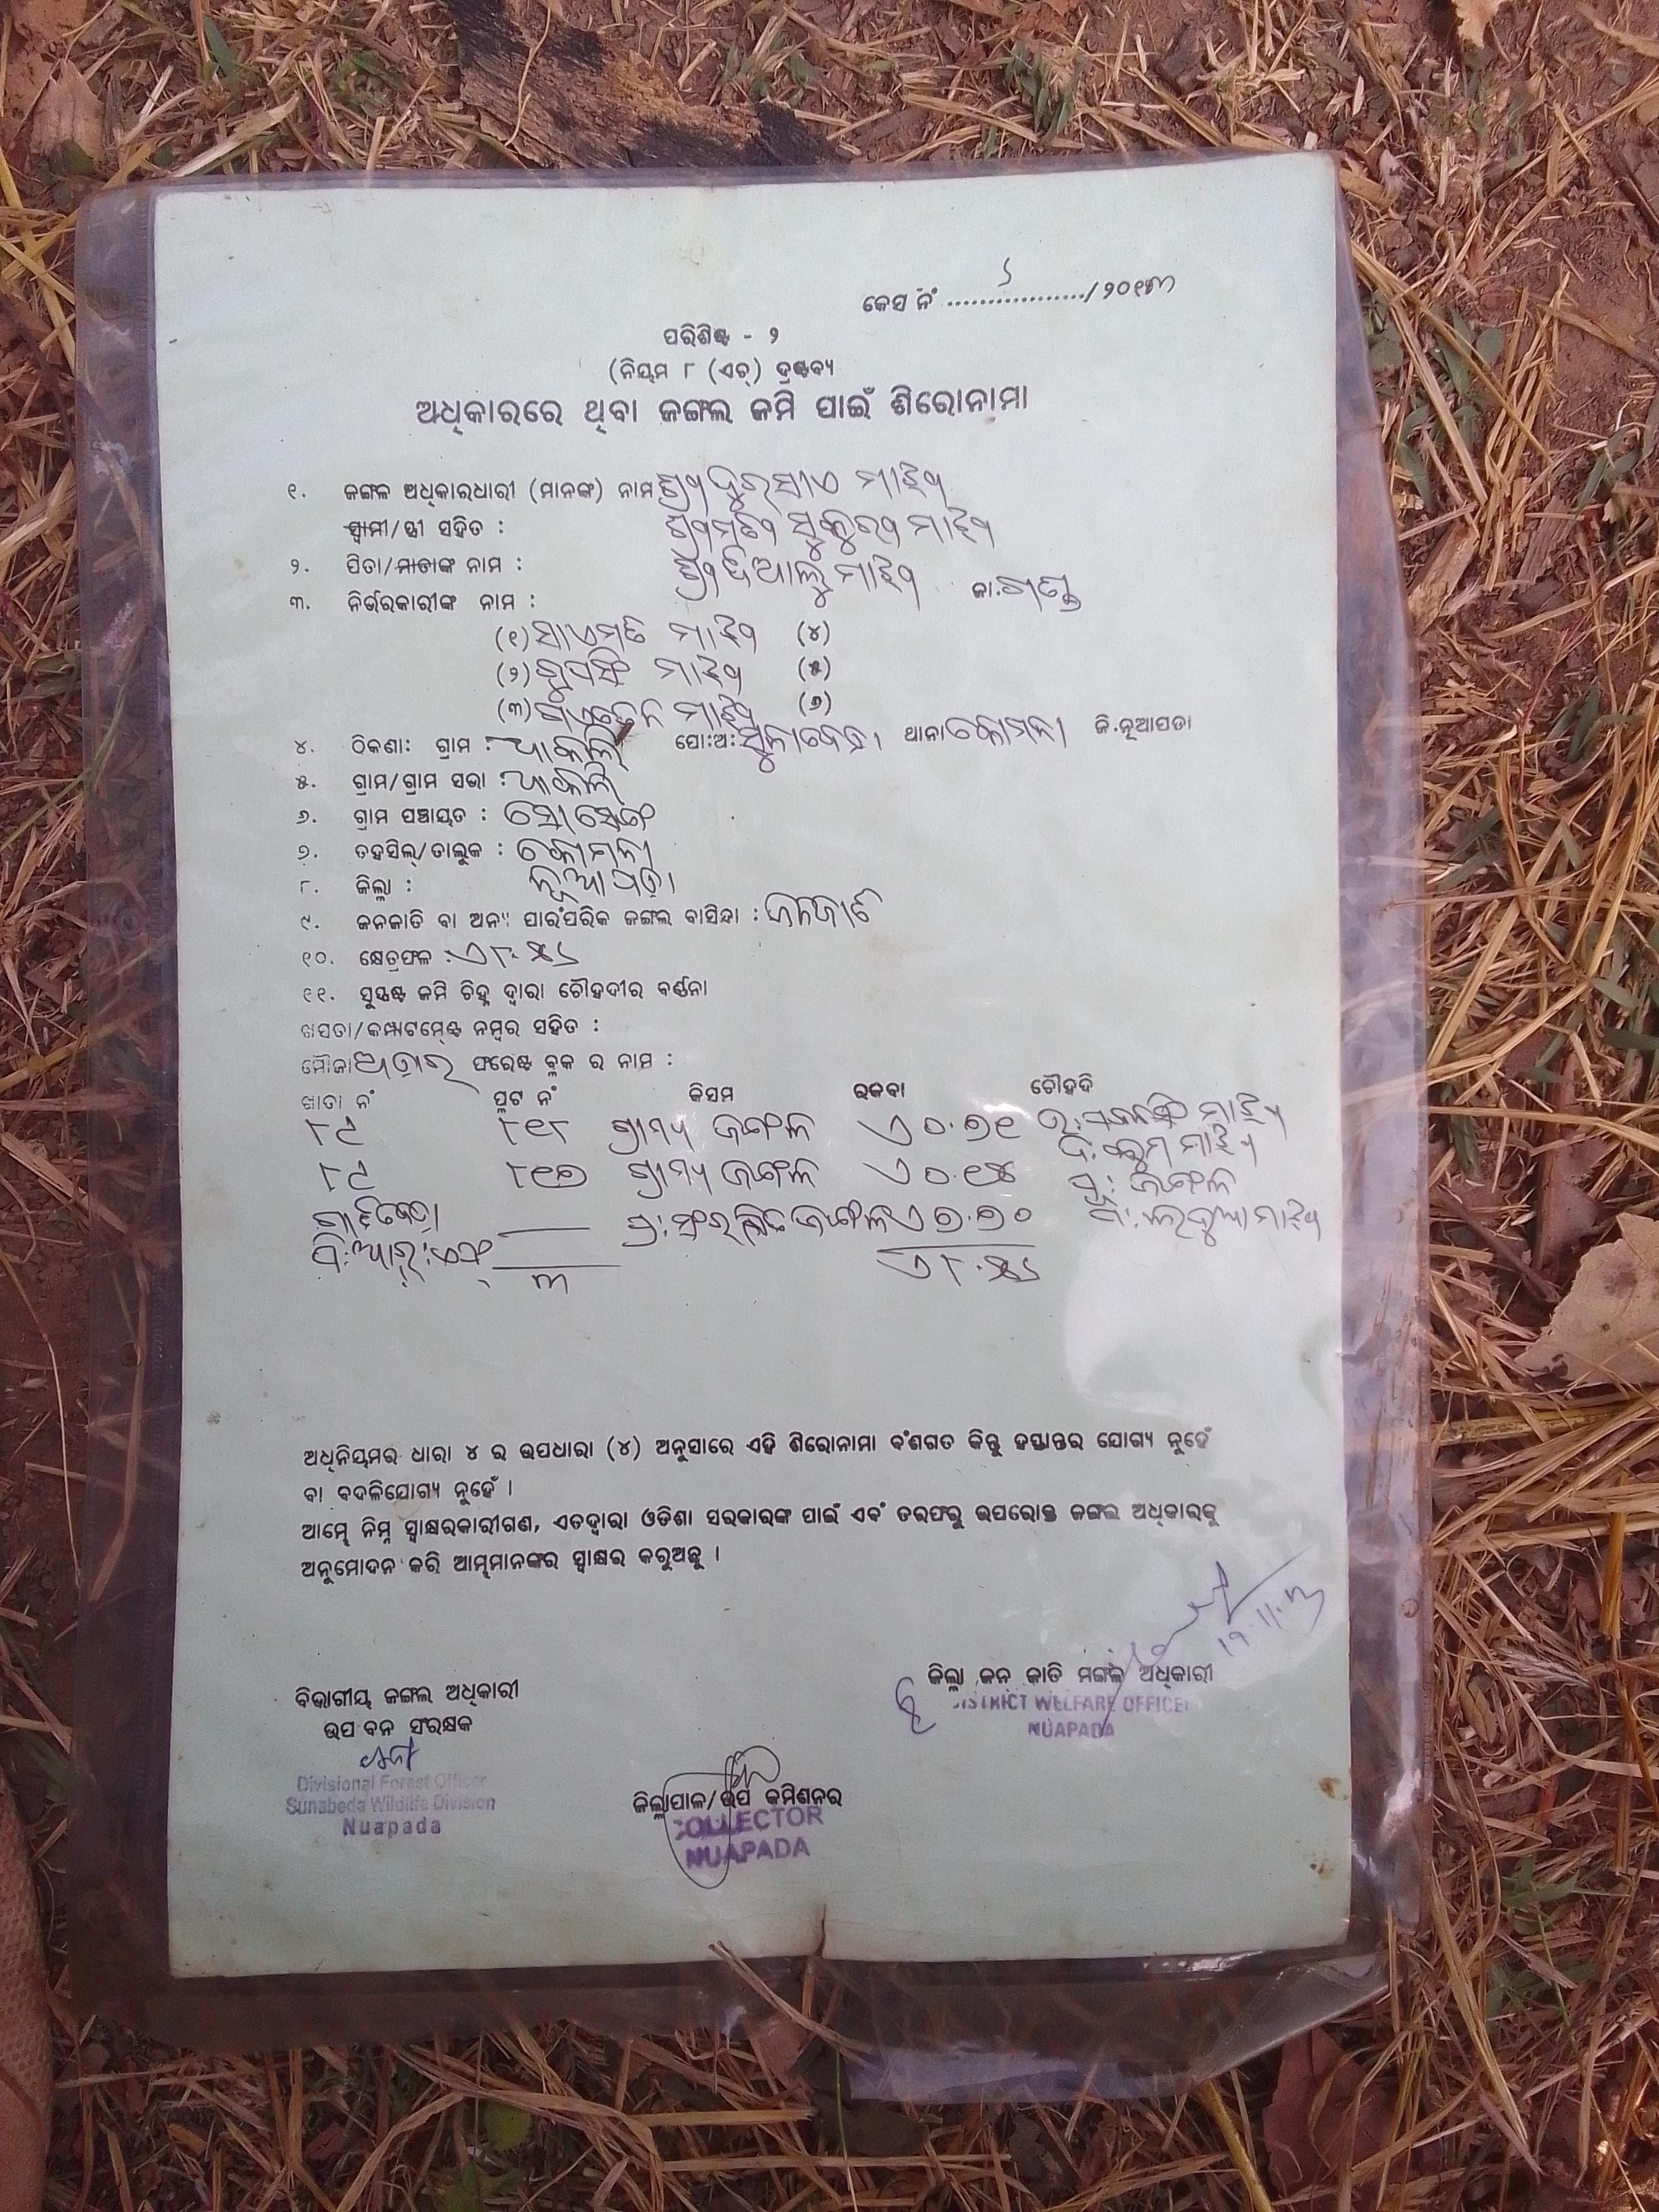 କେସ ନଂ ................./ ୨୦୧୩
ପରିଶିଷ୍ଟ - ୨
(ନିୟମ ୮ (ଏଚ୍) ଦ୍ରଷ୍ଟବ୍ୟ
ଅଧିକାରରେ ଥିବା ଜଙ୍ଗଲ ଜମି ପାଇଁ ଶିରୋନାମା
୧. ଜଙ୍ଗଳ ଅଧିକାରଧାରୀ (ମାନଙ୍କ) ନାମ ଶ୍ରୀ ଦୁରସାଏ ମାଝି
ସ୍ୱାମୀ/ସ୍ତ୍ରୀ ସହିତ : ଶ୍ରୀମତୀ ସୁକୁରୀ ମାଝି
୨. ପିତା/ମାତାଙ୍କ ନାମ : ଶ୍ରୀ ଦିଆଲୁ ମାଝି ଜା. ଗଣ୍ଡ
୩. ନିର୍ଭରକାରୀଙ୍କ ନାମ :
(୧) ସାଏମତି ମାଝି (୪)
(୨) ରୂପସିଂ ମାଝି (୫)
(୩) ମାଝି (୬)
୪. ଠିକଣା: ଗ୍ରାମ : ଢାକଲି ପୋ:ଅ: ସୁନାବେଡ଼ା ଥାନା କୋମନା ଜି.ନୂଆପଡା
୫. ଗ୍ରାମ/ଗ୍ରାମ ସଭା : ଢାକଲି
୬. ଗ୍ରାମ ପଞ୍ଚାୟତ : ସୋସେଙ୍ଗ
୭. ତହସିଲ୍/ତାଲୁକ : କୋମନା
୮. ଜିଲ୍ଲା : ନୂଆପଡ଼ା
୯. ଜନଜାତି ବା ଅନ୍ୟ ପାରଂପରିକ ଜଙ୍ଗଲ ବାସିନ୍ଦା : ଜନଜାତି
୧୦. କ୍ଷେତ୍ରଫଳ : ଏ ୮.୫୪
୧୧. ସୁସ୍ପଷ୍ଟ ଜମି ଚିହ୍ନ ଦ୍ୱାରା ଚୌହଦୀର ବର୍ଣ୍ଣନା
ଖସଡା/କମ୍ପାଟମେଣ୍ଟ ନମ୍ବର ସହିତ :
ମୌଜା ଫରେଷ୍ଟ ବ୍ଲକ ର ନାମ :
ଖାତା ନଂ ପ୍ଲଟ ନଂ କିସମ ରକବା ଚୌହଦି
୮୯ ୮୧୮ ଗ୍ରାମ୍ୟ ଜଙ୍ଗଲ ଏ ୦.୭୧ ଉ: ମାଝି
ଦ: ମାଝି
୮୯ ୮୧୭ ଗ୍ରାମ୍ୟ ଜଙ୍ଗଲ ଏ ୦.୧୪ ପୂ: ଜଙ୍ଗଲ
ପ୍ର: ସଂରକ୍ଷିତ ଜଙ୍ଗଲ ଏ ୭.୭୦ ପ: ଲଦୁଆ ମାଝି
ପି:ଆର୍:ଏଫ୍
୩ ଏ ୮.୫୪
ଅଧିନିୟମର ଧାରା ୪ ର ଉପଧାରା (୪) ଅନୁସାରେ ଏହି ଶିରୋନାମା ବଂଶଗତ କିନ୍ତୁ ହସ୍ତାନ୍ତର ଯୋଗ୍ୟ ନୁହେଁ
ବା ବଦଳିଯୋଗ୍ୟ ନୁହେଁ ।
ଆମ୍ଭେ ନିମ୍ନ ସ୍ୱାକ୍ଷରକାରୀଗଣ, ଏତଦ୍ଦ୍ୱାରା ଓଡିଶା ସରକାରଙ୍କ ପାଇଁ ଏବଂ ତରଫରୁ ଉପରୋକ୍ତ ଜଙ୍ଗଲ ଅଧିକାରକୁ
ଅନୁମୋଦନ କରି ଆମ୍ଭମାନଙ୍କର ସ୍ୱାକ୍ଷର କରୁଅଛୁ ।
ଜିଲ୍ଲା ଜନ ଜାତି ମଙ୍ଗଳ ଅଧିକାରୀ
DISTRICT WELFARE OFFICER
NUAPADA
ବିଭାଗୀୟ ଜଙ୍ଗଲ ଅଧିକାରୀ
ଉପ ବନ ସଂରକ୍ଷକ
Divisional Forest Officer
Sunabeda Wildlife Division
Nuapada
ଜିଲ୍ଲାପାଳ/ଉପ କମିଶନର
COLLECTOR
NUAPADA